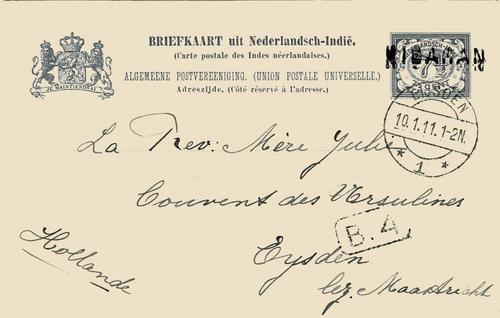 BRIEFKAART uit Nederlandsch-Indië.
(Carte postale des Indes néerlandaises.)
ALGEMEENE POSTVEREENIGING. (UNION POSTALE UNIVERSELLE.)
Adreszijde. (Côté réservé à l'adresse.)
JE MAINTIENDRAI
NEDERLANDSCH-INDIË
7½
CENT
EIJSDEN
10.1.11.1-2N.
* 1 *
La Rev: Mère Julie
Couvent des Ursulines
B.4
Eysden
Hollande
bez. Maastricht